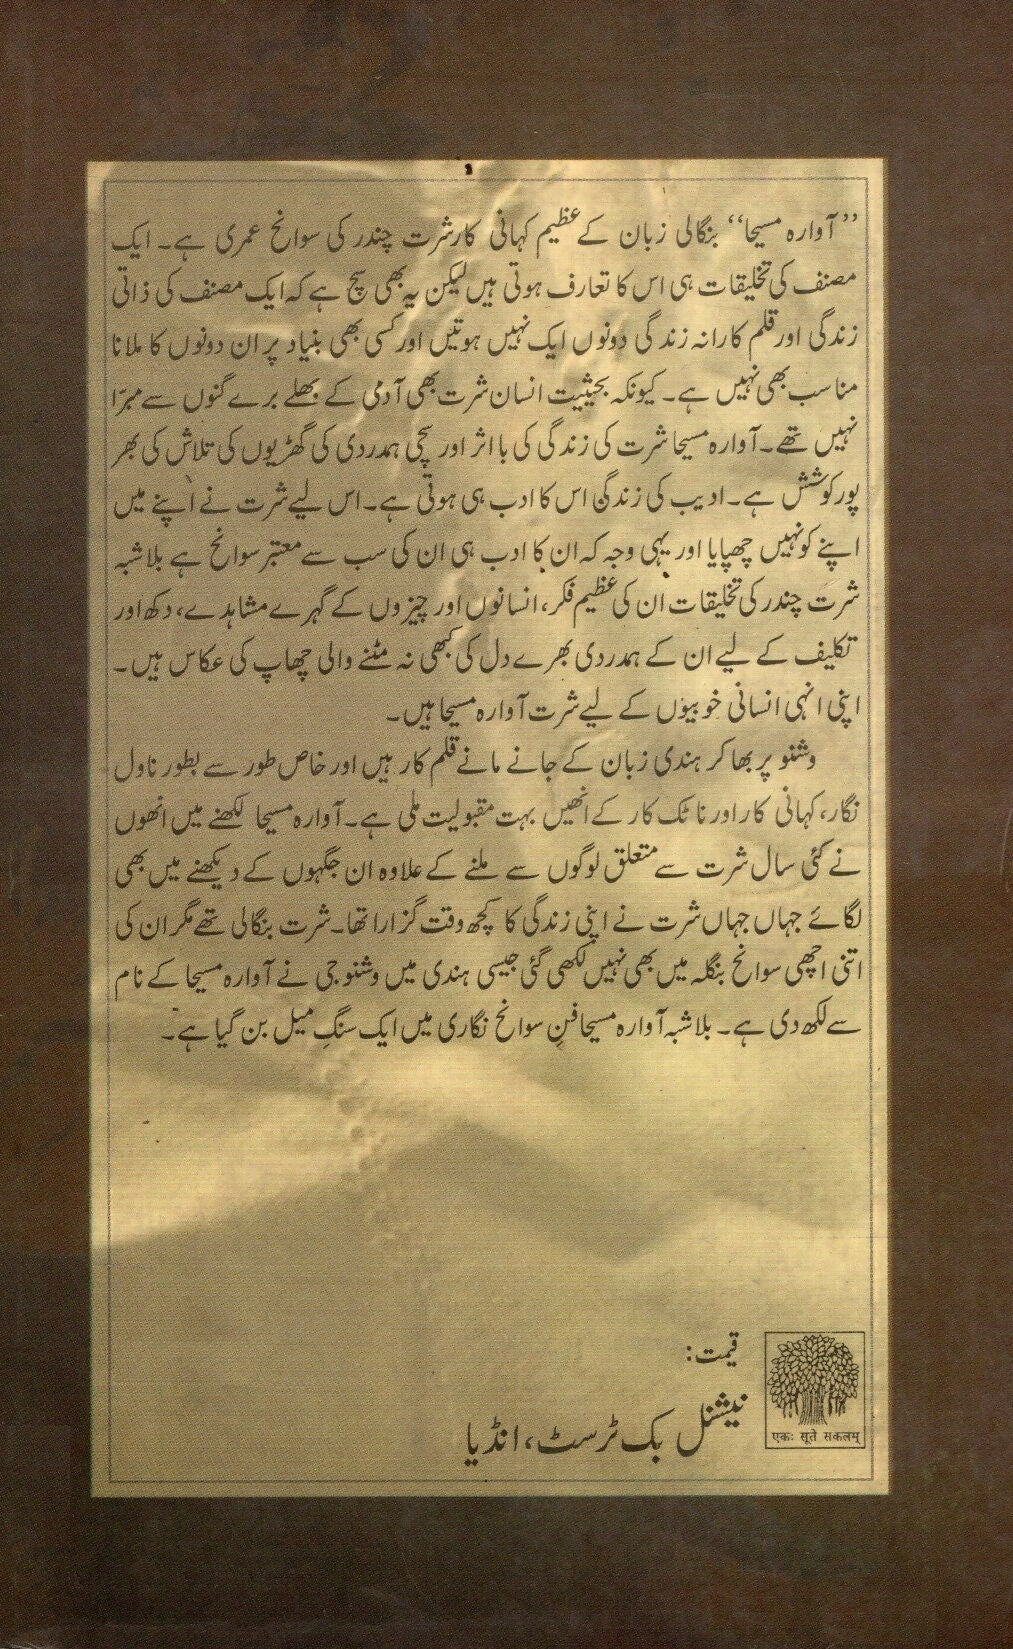 ”آوارہ مسیحا“ بنگالی زبان کے عظیم کہانی کار شرت چندر کی سوانح عمری ہے۔ ایک
مصنف کی تخلیقات ہی اس کا تعارف ہوتی ہیں لیکن یہ بھی سچ ہے کہ ایک مصنف کی ذاتی
زندگی اور قلم کارانہ زندگی دونوں ایک نہیں ہوتیں اور کسی بھی بنیاد پر ان دونوں کا ملانا
مناسب بھی نہیں ہے۔ کیونکہ بحیثیت انسان شرت بھی آدمی کے بھلے برے گنوں سے مبرّا
نہیں تھے۔ آوارہ مسیحا شرت کی زندگی کی با اثر اور سچی ہمدردی کی گھڑیوں کی تلاش کی بھر
پور کوشش ہے۔ ادیب کی زندگی اس کا ادب ہی ہوتی ہے۔ اس لیے شرت نے اپنے میں
اپنے کو نہیں چھپایا اور یہی وجہ کہ ان کا ادب ہی ان کی سب سے معتبر سوانح ہے بلاشبہ
شرت چندر کی تخلیقات ان کی عظیم فکر، انسانوں اور چیزوں کے گہرے مشاہدے، دکھ اور
تکلیف کے لیے ان کے ہمدردی بھرے دل کی کبھی نہ مٹنے والی چھاپ کی عکاس ہیں۔
اپنی انہی انسانی خوبیوں کے لیے شرت آوارہ مسیحا ہیں۔
وشنو پربھاکر ہندی زبان کے جانے مانے قلم کار ہیں اور خاص طور سے بطور ناول
نگار، کہانی کار اور ناٹک کار کے انھیں بہت مقبولیت ملی ہے۔ آوارہ مسیحا لکھنے میں انھوں
نے کئی سال شرت سے متعلق لوگوں سے ملنے کے علاوہ ان جگہوں کے دیکھنے میں بھی
لگائے جہاں جہاں شرت نے اپنی زندگی کا کچھ وقت گزارا تھا۔ شرت بنگالی تھے مگر ان کی
اتنی اچھی سوانح بنگلہ میں بھی نہیں لکھی گئی جیسی ہندی میں وشنو جی نے آوارہ مسیحا کے نام
سے لکھ دی ہے۔ بلاشبہ آوارہ مسیحا فنِ سوانح نگاری میں ایک سنگِ میل بن گیا ہے۔
قیمت:
نیشنل بک ٹرسٹ، انڈیا
एकः सूते सकलम्